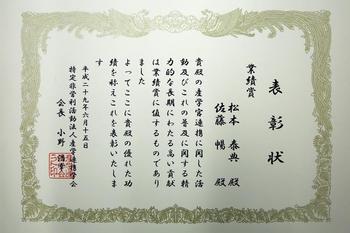 表彰状
業績賞
松本 泰典 殿
佐藤 暢 殿
貴殿の産学官連携に関した活
動及びこれの普及に関する精
力的な長期にわたる高い貢献
は業績賞に値するものであり
ました
よってここに貴殿の優れた功
績を称えこれを表彰いたしま
す
平成二十九年六月十五日
特定非営利活動法人産学連携学会
会長 小野